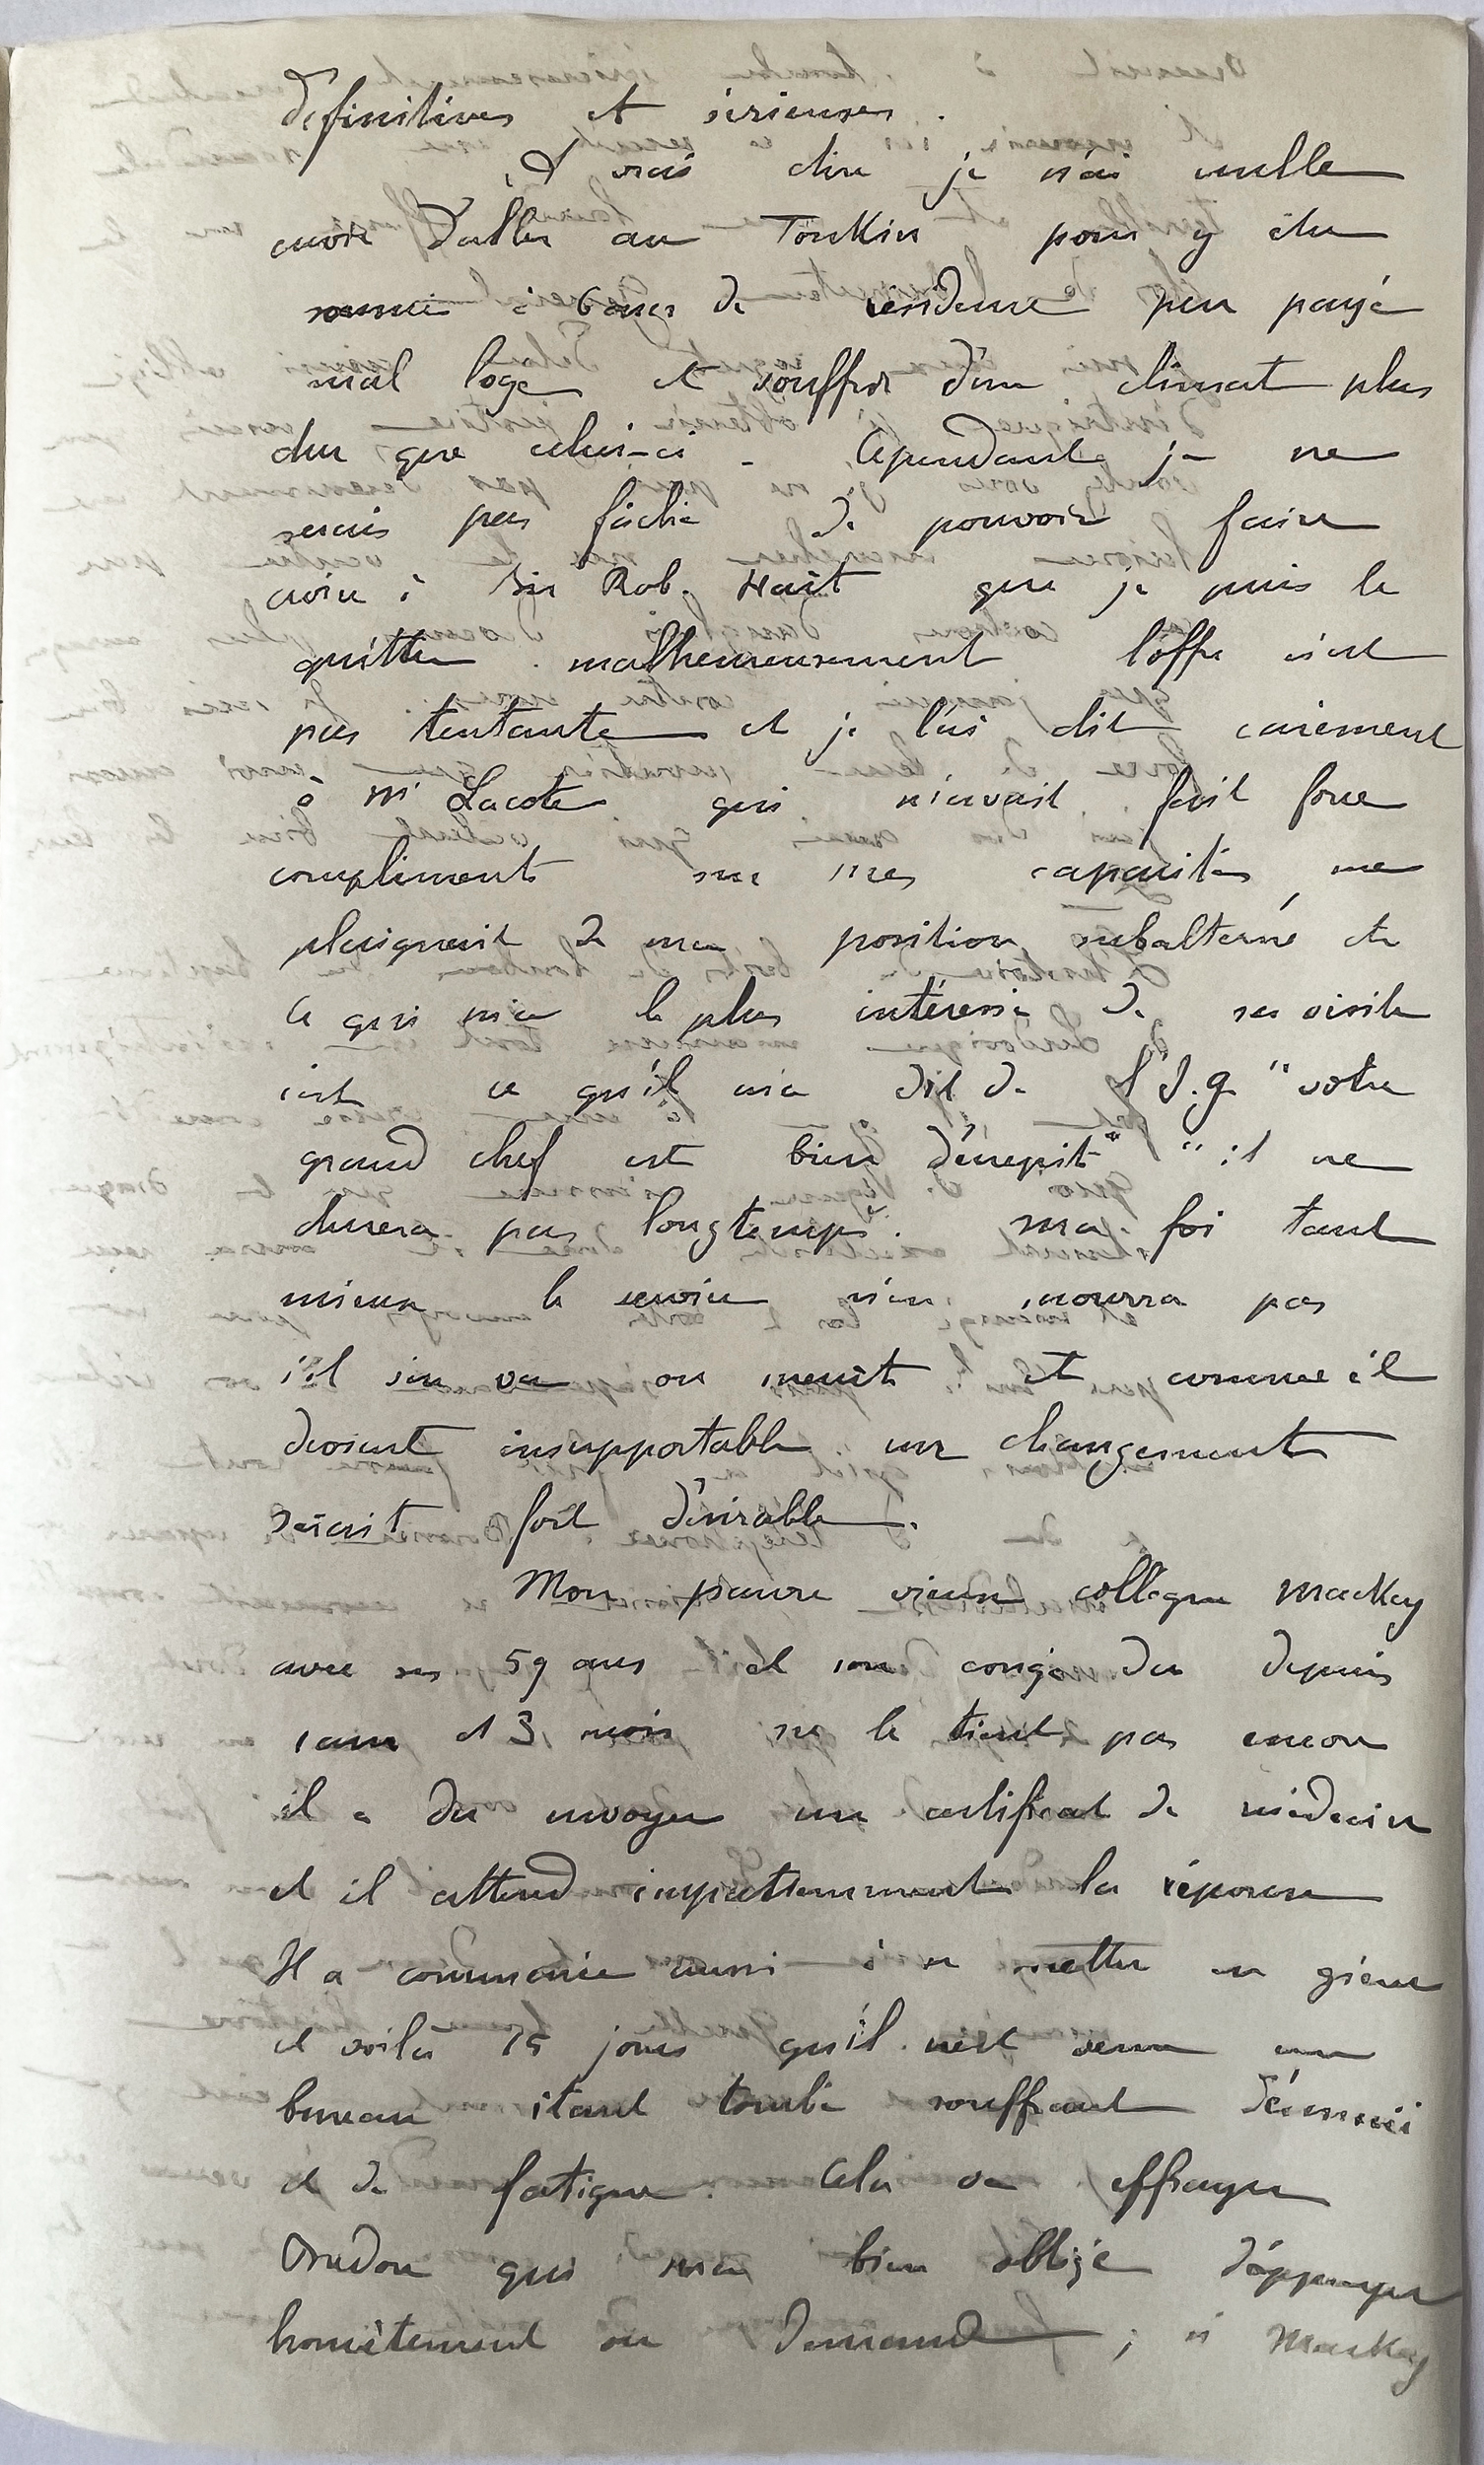 définitives et sérieuses.
à vrai dire je n'ai nulle
envie d'aller au Tonkin pour y être
nommé à bans de résidence peu payé
mal logé et souffrir d'un climat plus
dur que celui-ci. Cependant je ne
serais pas fâché de pouvoir faire
croire à Sir Rob. Hart que je puis le
quitter. malheureusement l'offre n'est
pas tentante et je l'ai dit carrément
à Mr Lacote qui m'avait fait force
compliments sur mes capacités, me
plaignait de ma position subalterne etc
Ce qui m'a le plus intéressé de sa visite
c'est ce qu'il m'a dit de l'I.G. "votre
grand chef est bien décrépit" "il ne
durera pas longtemps. ma foi tant
mieux le service n'en mourra pas
s'il s'en va ou meurt et comme il
devient insupportable un changement
serait fort désirable.
Mon pauvre vieux collègue MacKay
avec ses 59 ans et son congé du depuis
1 an et 3 mois ne le tient pas encore
il a du envoyer un certificat de médecin
et il attend impatiemment la réponse
Il a commencé aussi à se mettre en grève
et voilà 15 jours qu'il n'est venu au
bureau étant tombé souffrant d'ennui
et de fatigue. Cela va effrayer
Oredon qui sera bien obligé d'appuyer
honnêtement sa demande ; si MacKay